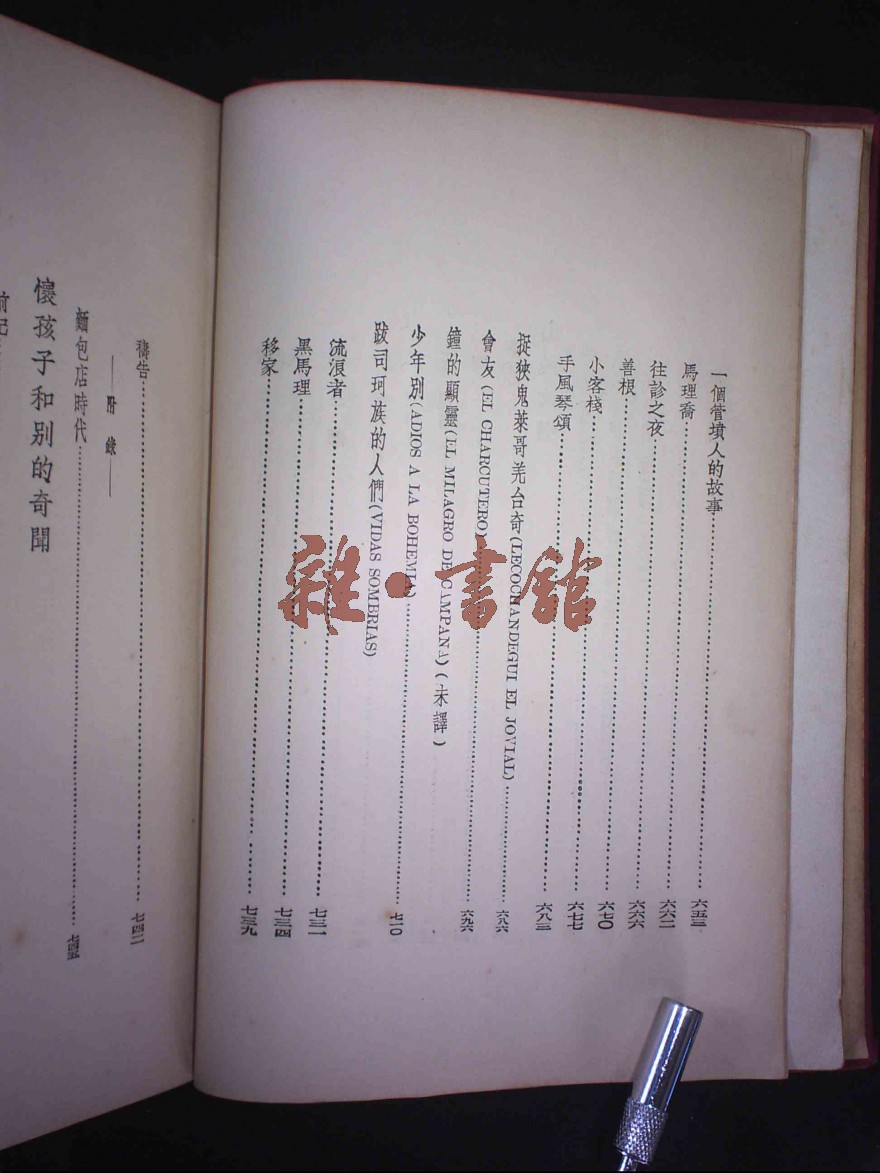 一個管墳人的故事…………六五三
馬理喬…………六六二
往診之夜…………六六六
善根…………六七〇
小客棧…………六七七
手風琴頌…………六八三
捉狹鬼萊哥羌台奇(LECOCHANDEGUI EL JOVIAL)…………六八六
會友(EL CHARCUTERO)…………六九六
鐘的顯靈(EL MILAGRO DE CAMPANA)(未譯)
少年別(ADIOS A LA BOHEMIA)…………七一〇
跋司珂族的人們(VIDAS SOMBRIAS)
流浪者…………七三一
黑馬理…………七三四
移家…………七三九
禱告…………七四二
——附錄——
麵包店時代…………七四五
懷孩子和別的奇聞
前記
雜·書館